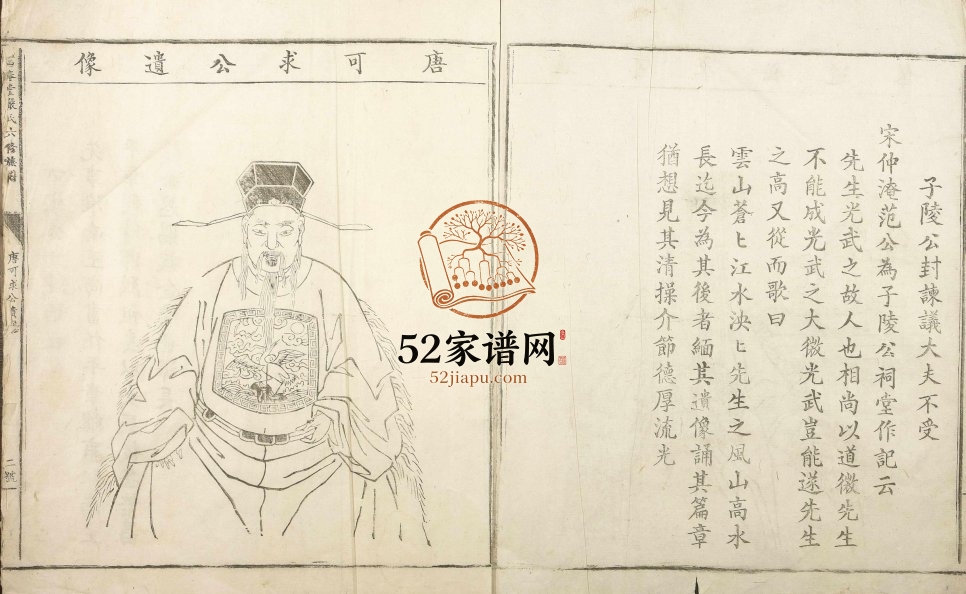 子陵公封諫議大夫不受
宋仲淹范公為子陵公祠堂作記云
先生光武之故人也相尚以道微先生
不能成光武之大微光武豈能遂先生
之高又從而歌曰
雲山蒼〻江水泱〻先生之風山高水
長迄今為其後者緬其遺像誦其篇章
猶想見其清操介節德厚流光
唐可求公遺像
唐可求公遺
二號
52家谱网
52jiapu.com